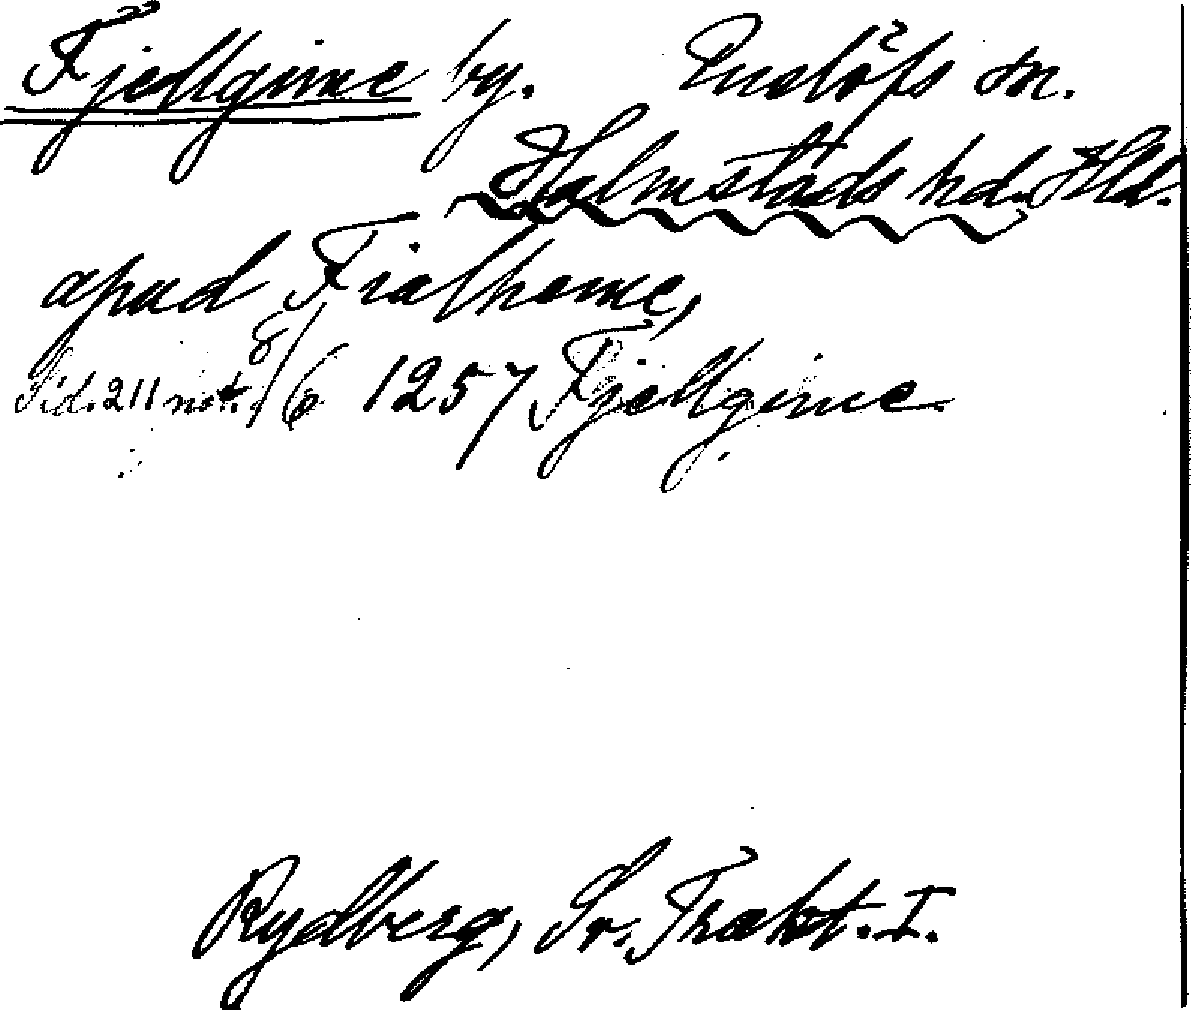 Fjellginne by. Enslöfs sn.
Halmstads hd. Hld.
apud Fialhenne,
Sid. 211 not. 8/6 1257 Fjellginne.
Rydberg, Sv. Trakt. I.